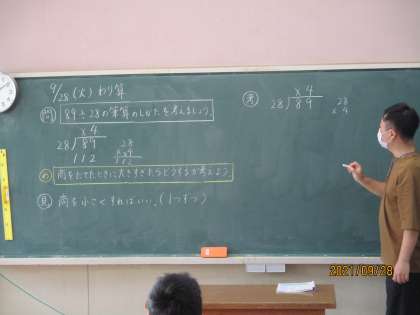 9/28 (火) わり算
問 89÷28の筆算のしかたを考えましょう。
×4
28)89
112
28
×4
112
め 商をたてたときに大きすぎたらどうするか考えよう
見 商を小さくすればいい。(1つずつ)
考
×4
28)89
28
×4
2021/09/28